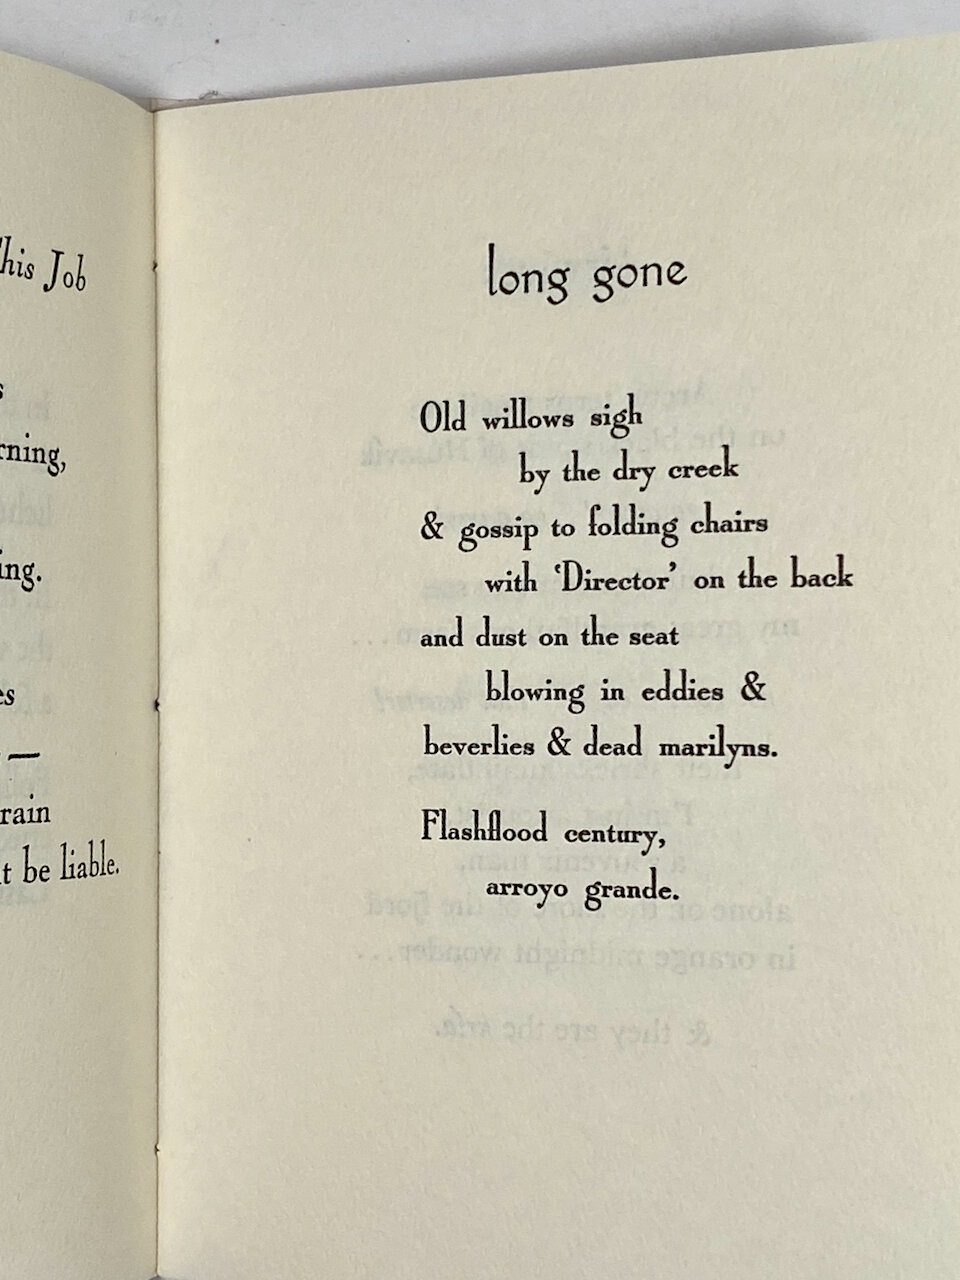 his Job
rning,
ing.
es
—
rain
t be liable.
long gone
Old willows sigh
by the dry creek
& gossip to folding chairs
with ‘Director’ on the back
and dust on the seat
blowing in eddies &
beverlies & dead marilyns.
Flashflood century,
arroyo grande.